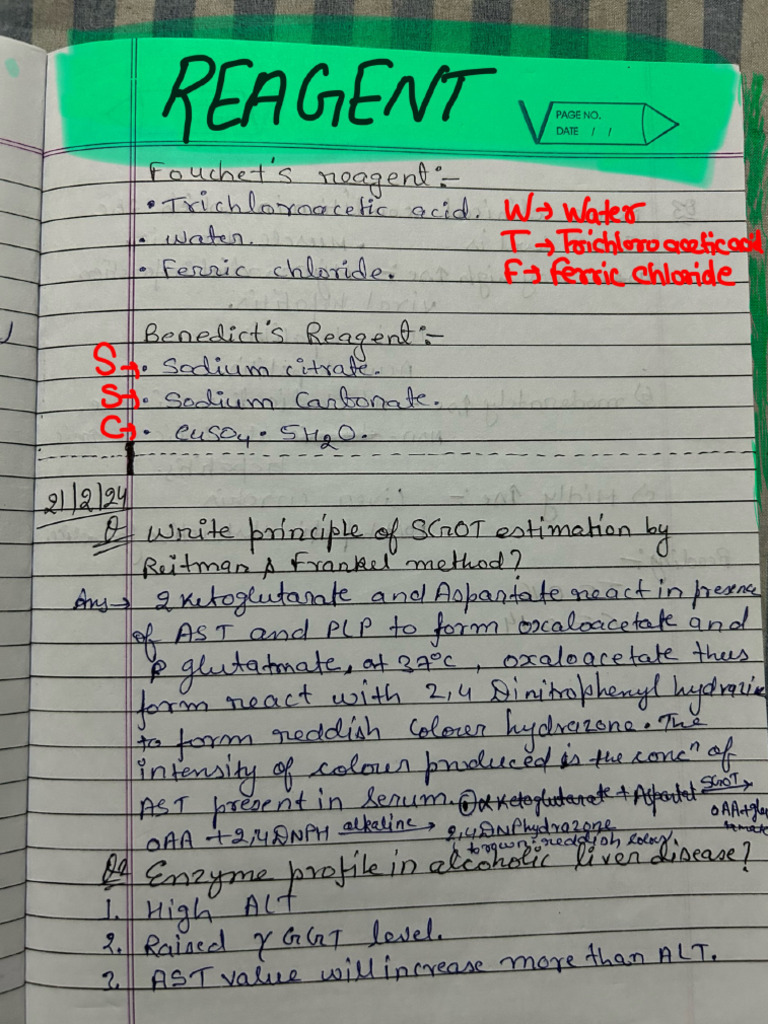 REAGENT
PAGE NO.
DATE / /
Fouchet's reagent:-
• Trichloroacetic acid. W→ Water
• Water. T→ Trichloroaceticacid
• Ferric chloride. F→ Ferric Chloride
Benedict's Reagent:-
S→ • Sodium citrate.
S→ • Sodium Carbonate.
C→ • CuSO4 • 5H2O.
21/2/24
Q Write principle of SGOT estimation by
Reitman & Frankel method?
Ans→ 2 Ketoglutarate and Aspartate react in presence
of AST and PLP to form oxaloacetate and
glutatmate, at 37°c, oxaloacetate thus
form react with 2,4 Dinitrophenyl hydrazine
to form reddish colour hydrazone. The
intensity of colour produced is the concn of
AST present in Serum. α Ketoglutarate + Aspartet SGOT→
OAA+glutamate
OAA + 2,4 DNPH alkaline→ 2,4 DNPhydrazone
brown: reddish colour
Q2 Enzyme profile in alcoholic liver disease?
1. High ALT
2. Raised γ GGT level.
3. AST value will increase more than ALT.